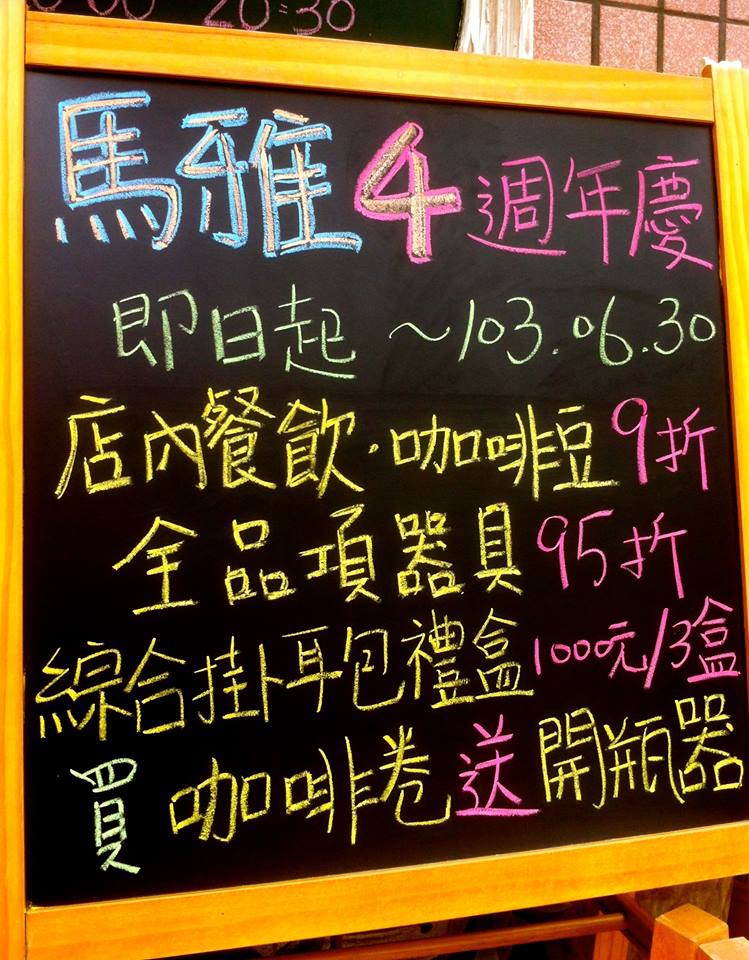 20:30
馬雅4週年慶
即日起~103.06.30
店內餐飲·咖啡豆9折
全品項器具95折
綜合掛耳包禮盒1000元/3盒
買咖啡卷送開瓶器